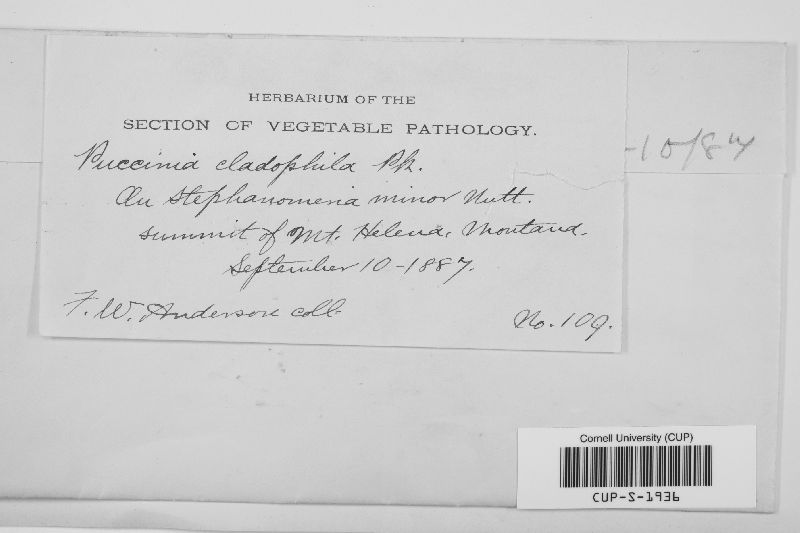 HERBARIUM OF THE
SECTION OF VEGETABLE PATHOLOGY.
Puccinia cladophila Pk.
On Stephanomeria minor Nutt.
summit of Mt. Helena, Montana.
September 10-1887.
F. W. Anderson coll
No. 109.
-10/87
Cornell University (CUP)
CUP-S-1936